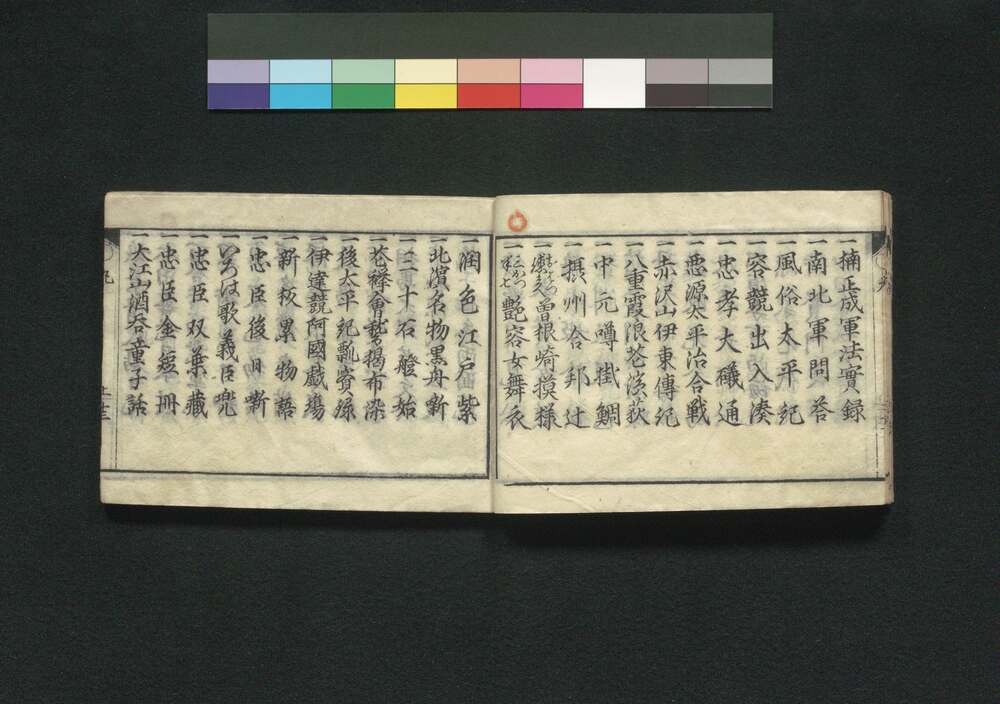 一楠正成軍法實録
一南北軍問荅
一風俗太平紀
一容競出入湊
一忠孝大礒通
一悪源太平治合戦
一赤沢山伊東傳紀
一八重霞浪花濱荻
一中元噂掛鯛
一摂州合邦辻
一曽根崎摸様
一三かつ半七艶容女舞衣
一潤色江戸紫
一北濵名物黒舟噺
一三十石艠始
一花襷會稽褐布染
一後太平記瓢實録
一伊達競阿國戯塲
一新板累物語
一忠臣後日噺
一いろは歌義臣兜
一忠臣双葉蔵
一忠臣金短冊
一大江山酒吞童子話